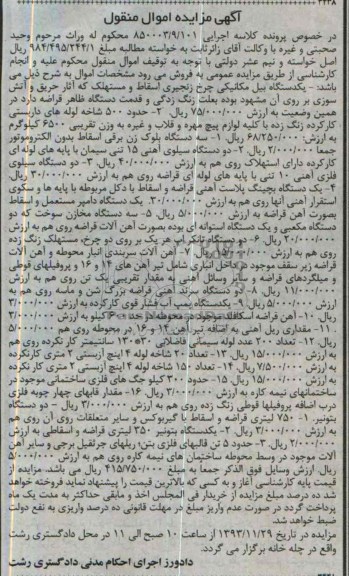 آگهی مزایده اموال منقول
در خصوص پرونده کلاسه اجرایی ۸۵۰۰۰۳/۹/۱۰۱ محکوم له وراث مرحوم وحید
صحبتی و غیره با وکالت آقای زائر ثابت به خواسته مطالبه مبلغ ۹۸۴/۴۹۵/۲۴۴/۱ ریال
اصل خواسته و نیم عشر دولتی با توجه به توقیف اموال منقول محکوم علیه و انجام
کارشناسی از طریق مزایده عمومی به فروش می رود مشخصات اموال به شرح ذیل می
باشد: - یکدستگاه بیل مکانیکی چرخ زنجیری اسقاط و مستهلک که آثار حریق و آتش
سوزی بر روی آن مشهود بوده بعلت زنگ زدگی و قدمت دستگاه ظاهر قراضه دارد در
همین وضعیت به ارزش ۷۵/۰۰۰/۰۰۰ ریال. ۲- حدود ۵۰۰ شاخه لوله های داربستی
کارکرده زنگ زده با کلیه لوازم پیچ مهره و قلاب و غیره به وزن تقریبی ۶۵۰۰ کیلوگرم
به ارزش: ۶۸/۲۵۰/۰۰۰ ریال. ۱- سه دستگاه بلوک زن برقی اسقاط بدون الکتروموتور
جمعا ۲/۰۰۰/۰۰۰ ریال ۲- دو دستگاه سیلوی آهنی ۱۵ تنی سیمان با پایه های لوله ای
کارکرده دارای استهلاک روی هم به ارزش ۴۰/۰۰۰/۰۰۰ ریال. ۳- دو دستگاه سیلوی
فلزی آهنی ۱۰ تنی با پایه های لوله ای قراضه روی هم به ارزش ۳۰/۰۰۰/۰۰۰ ریال.
۴- یک دستگاه بچینگ پلاست آهنی قراضه و اسقاط با دکل مربوطه با پایه ها و سکوی
استقرار آهنی آنها روی هم به ارزش ۳۰/۰۰۰/۰۰۰. یک دستگاه دامپر مستعمل و اسقاط
بصورت آهن قراضه به ارزش ۵/۰۰۰/۰۰۰ ریال. ۵- سه دستگاه مخازن سوخت که دو
دستگاه مکعبی و یک دستگاه استوانه ای بوده بصورت آهن آلات قراضه روی هم به ارزش
۲۰/۰۰۰/۰۰۰ ریال. ۶- دو دستگاه تانکر آب هر یک بر روی دو چرخ، مستهلک زنگ زده
روی هم به ارزش ۱۵/۰۰۰/۰۰۰ ریال. ۷- آهن آلات سربندی انبار محوطه و آهن آلات
قراضه زیر سقف موجود در داخل انباری شامل تیر آهن های ۱۴ و ۱۶ و پروفیلهای قوطی
و میلگردهای قراضه و سایر وسایل آهنی به مقدار تقریبی یک تن روی هم به ارزش
۱۱/۰۰۰/۰۰۰ ریال. ۸- دو دستگاه سرند آهنی قراضه بزرگ شن و ماسه روی هم به
ارزش ۵/۰۰۰/۰۰۰ ریال. ۹- یکدستگاه پمپ آب فشار قوی کارکرده به ارزش ۳/۰۰۰/۰۰۰
ریال. ۱۰- آهن قراضه اسکافلد موجود در محوطه در حد ۶۰۰ کیلو به ارزش ۳/۰۰۰/۰۰۰
. ۱۱- مقداری ریل آهنی به اضافه تیر آهن ۱۴ و ۱۶ در محوطه روی هم ۵/۰۰۰/۰۰۰
ریال. ۱۲- تعداد ۲۰۰ عدد لوله سیمانی فاضلابی ۳۰*۱۳۰ سانتیمتر کار نکرده روی هم
به ارزش ۱۵/۰۰۰/۰۰۰ ریال. ۱۳- تعداد ۲۰ شاخه لوله ۴ اینچ آزبستی ۲ متری کارنکرده
به ارزش ۷/۵۰۰/۰۰۰ ریال. ۱۴- تعداد ۱۵۰ شاخه لوله ۴ اینچ آزبستی ۲ متری کار نکرده
به ارزش ۱۵/۰۰۰/۰۰۰ ریال. ۱۵- حدود ۳۰۰ کیلو جک های فلزی ساختمانی موجود در
ساختمانهای نیمه کاره به ارزش ۳/۰۰۰/۰۰۰ ریال. ۱۶- مقدار قابهای چهار چوبه فلزی
درب اضافه پروفیلها قوطی زنگ زده روی هم به ارزش ۳/۰۰۰/۰۰۰ ریال - دو دستگاه
بتونیر. ۱- ۷۵۰ لیتری قراضه و اسقاط با گیربوکس و سایر متعلقات روی آن روی هم
به ارزش ۳/۰۰۰/۰۰۰ ریال. ۲- یکدستگاه بتونیر ۳۵۰ لیتری قراضه و اسقاطی به ارزش
۲/۰۰۰/۰۰۰ ریال. ۳- حدود ۵ تن قالبهای فلزی بتن، ریلهای جرثقیل برجی و سایر آهن
آلات موجود در وسط محوطه ساختمان های نیمه کاره روی هم به ارزش ۵/۰۰۰/۰۰۰
ریال. ارزش وسایل فوق الذکر جمعا به مبلغ ۴۱۵/۷۵۰/۰۰۰ ریال می باشد. مزایده از
قیمت پایه کارشناسی آغاز و به کسی که بالاترین قیمت را پیشنهاد نماید فروخته خواهد
شد ده درصد مبلغ مزایده از خریدار فی المجلس اخذ و مابقی حداکثر به مدت یک ماه
پرداخت گردد در صورت عدم واریز مبلغ در مهلت قانونی ده درصد واریزی به نفع دولت
ضبط خواهد شد.
مزایده در تاریخ ۱۳۹۳/۱۱/۲۹ از ساعت ۱۰ صبح الی ۱۱ در محل دادگستری رشت
واقع در چله خانه برگزار می گردد.
دادورز اجرای احکام مدنی دادگستری رشت